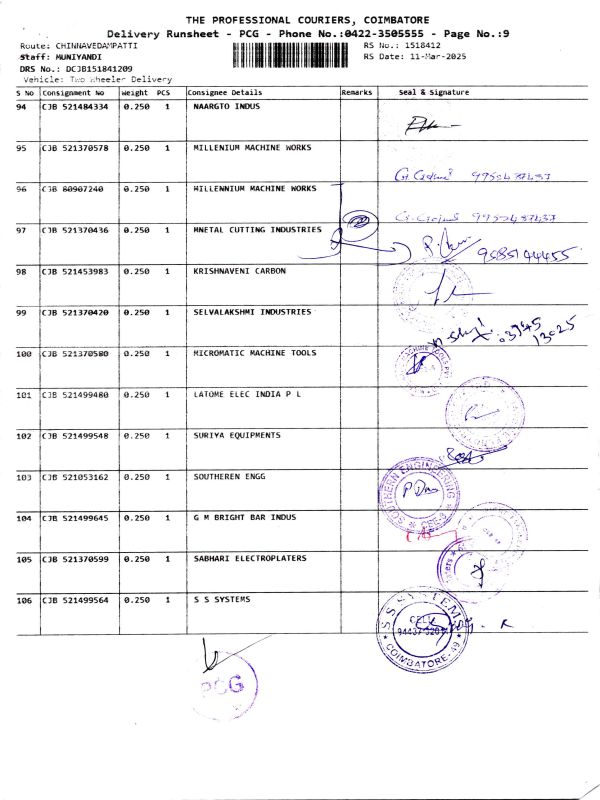 THE PROFESSIONAL COURIERS, COIMBATORE
Delivery Runsheet - PCG - Phone No.:0422-3505555 - Page No.:9
Route: CHINNAVEDAMPATTI RS No.: 1518412
Staff: MUNIYANDI RS Date: 11-Mar-2025
DRS No.: DCJB151841209
Vehicle: Two Wheeler Delivery
S No Consignment No Weight PCS Consignee Details Remarks Seal & Signature
94 CJB 521484334 0.250 1 NAARGTO INDUS
95 CJB 521370578 0.250 1 MILLENIUM MACHINE WORKS
96 CJB 80907240 0.250 1 MILLENNIUM MACHINE WORKS
97 CJB 521370436 0.250 1 MNETAL CUTTING INDUSTRIES
98 CJB 521453983 0.250 1 KRISHNAVENI CARBON
99 CJB 521370420 0.250 1 SELVALAKSHMI INDUSTRIES
100 CJB 521370580 0.250 1 MICROMATIC MACHINE TOOLS
101 CJB 521499480 0.250 1 LATOME ELEC INDIA P L
102 CJB 521499548 0.250 1 SURIYA EQUIPMENTS
103 CJB 521053162 0.250 1 SOUTHEREN ENGG
SOUTHERN ENGINEERING
104 CJB 521499645 0.250 1 G M BRIGHT BAR INDUS
105 CJB 521370599 0.250 1 SABHARI ELECTROPLATERS
106 CJB 521499564 0.250 1 S S SYSTEMS
S S SYSTEMS
CELL
COIMBATORE-49
PCG